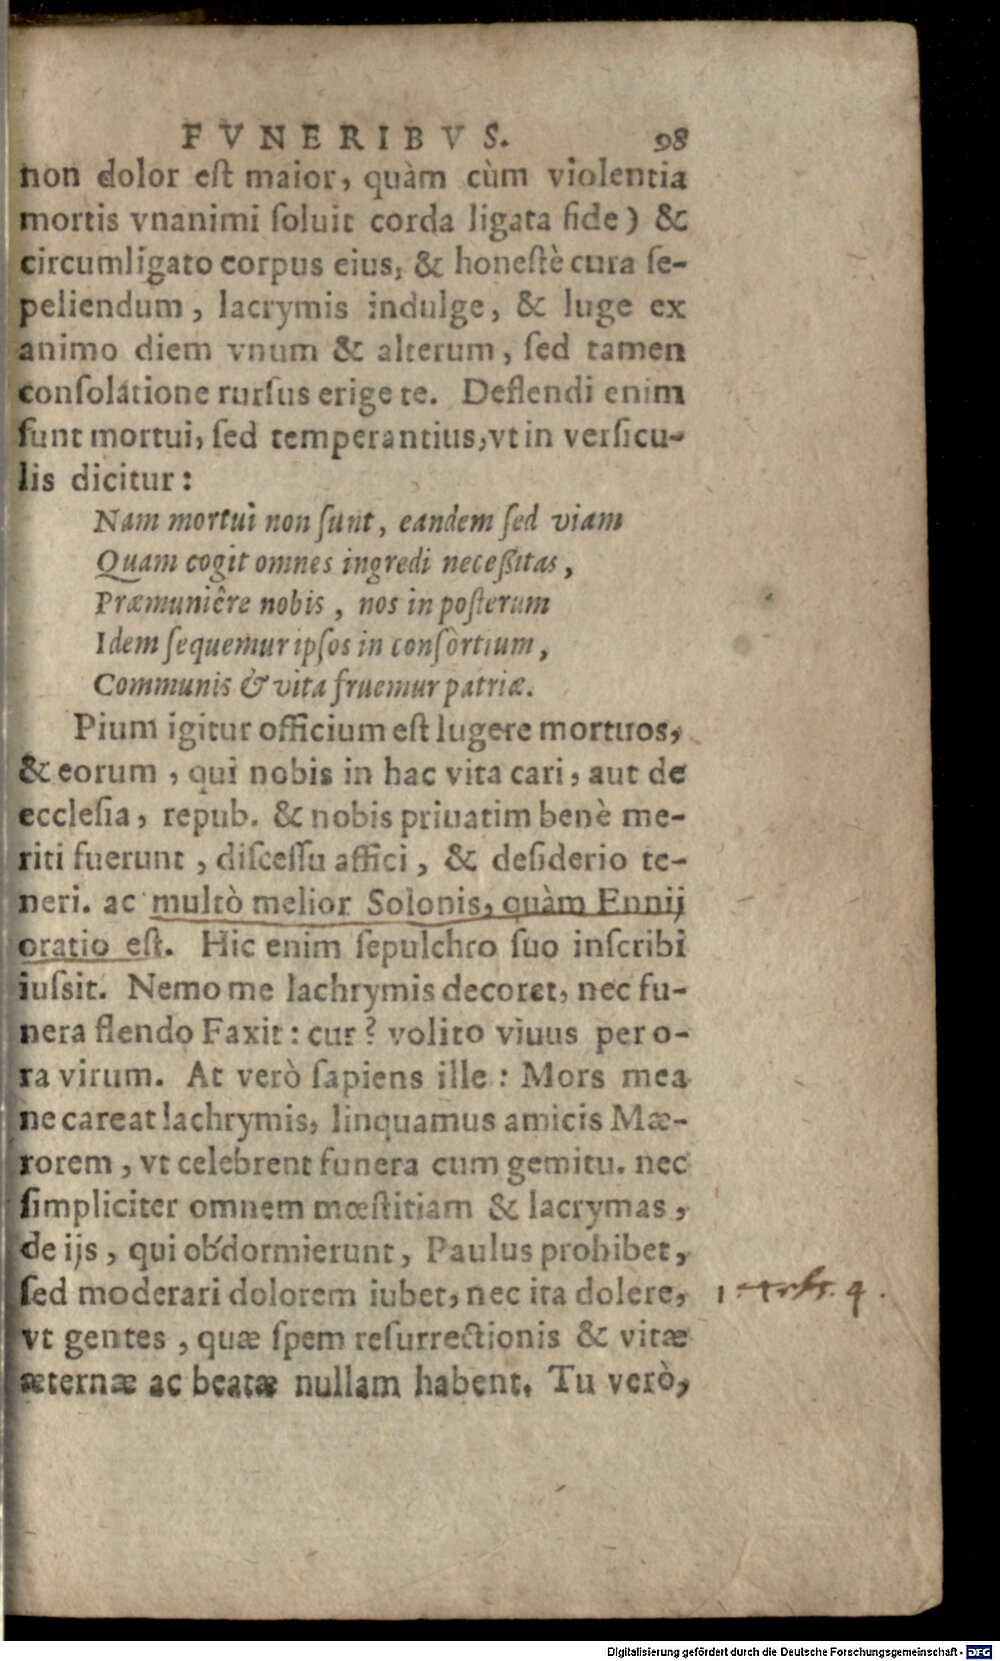 FVNERIBVS. 98
non dolor eſt maior, quàm cùm violentia
mortis vnanimi ſoluit corda ligata fide) &
circumligato corpus eius, & honeſtè cura ſe-
peliendum, lacrymis indulge, & luge ex
animo diem vnum & alterum, ſed tamen
conſolatione rurſus erige te. Deflendi enim
ſunt mortui, ſed temperantius, vt in verſicu-
lis dicitur:
Nam mortui non ſunt, eandem ſed viam
Quam cogit omnes ingredi neceßitas,
Præmuniêre nobis, nos in poſterum
Idem ſequemur ipſos in conſortium,
Communis & vita fruemur patriæ.
Pium igitur officium eſt lugere mortuos,
& eorum, qui nobis in hac vita cari, aut de
eccleſia, repub. & nobis priuatim benè me-
riti fuerunt, diſceſſu affici, & deſiderio te-
neri. ac multò melior Solonis, quàm Ennij
oratio eſt. Hic enim ſepulchro ſuo inſcribi
iuſsit. Nemo me lachrymis decoret, nec fu-
nera flendo Faxit: cur? volito viuus per o-
ra virum. At verò ſapiens ille: Mors mea
ne careat lachrymis, linquamus amicis Mæ-
rorem, vt celebrent funera cum gemitu. nec
ſimpliciter omnem mœſtitiam & lacrymas,
de ijs, qui obdormierunt, Paulus prohibet,
ſed moderari dolorem iubet, nec ita dolere, 1. 4.
vt gentes, quæ ſpem reſurrectionis & vitæ
æternæ ac beatæ nullam habent. Tu verò,
Digitalisierung gefördert durch die Deutsche Forschungsgemeinschaft - DFG